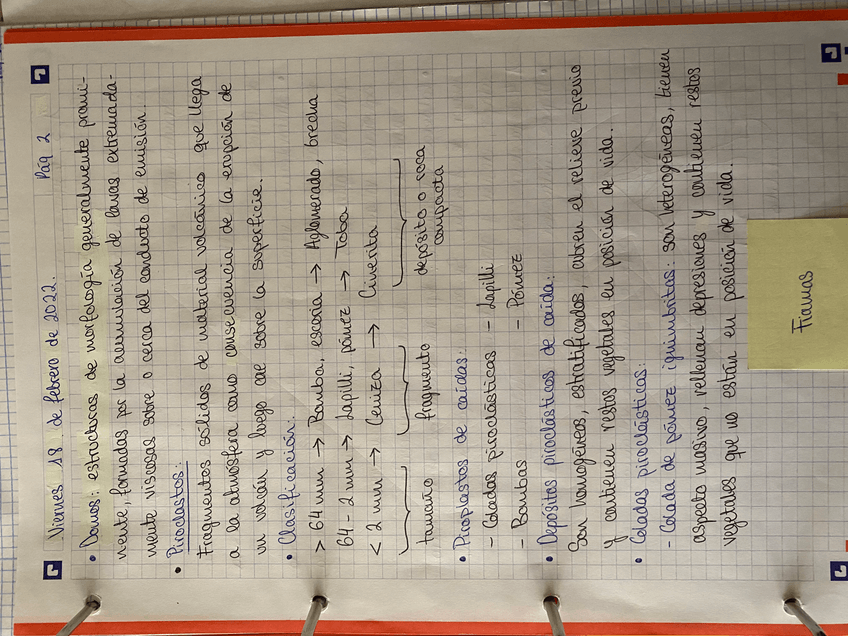 Viernes 18 de febrero de 2022. Pág 2
• Domos: estructuras de morfología generalmente promi-
nente, formadas por la acumulación de lavas extremada-
mente viscosas sobre o cerca del conducto de emisión.
• Piroclastos:
Fragmentos sólidos de material volcánico que llega
a la atmósfera como consecuencia de la erupción de
un volcán y luego cae sobre la superficie.
• Clasificación:
> 64 mm → Bomba, escoria → Aglomerado, brecha
64 - 2 mm → Lapilli, pómez → Toba
< 2 mm → Ceniza → Cinerita
tamaño fragmento depósito o roca
compacta
• Piroplastos de caídas:
- Coladas piroclásticas - Lapilli
- Bombas - Pómez
• Depósitos piroclásticos de caída:
Son homogéneos, estratificados, cubren el relieve previo
y contienen restos vegetales en posición de vida.
• Coladas piroclásticas:
- Colada de pómez ignimbritas: son heterogéneas, tienen
aspecto masivo, rellenan depresiones y contienen restos
vegetales que no están en posición de vida.
Fiamas